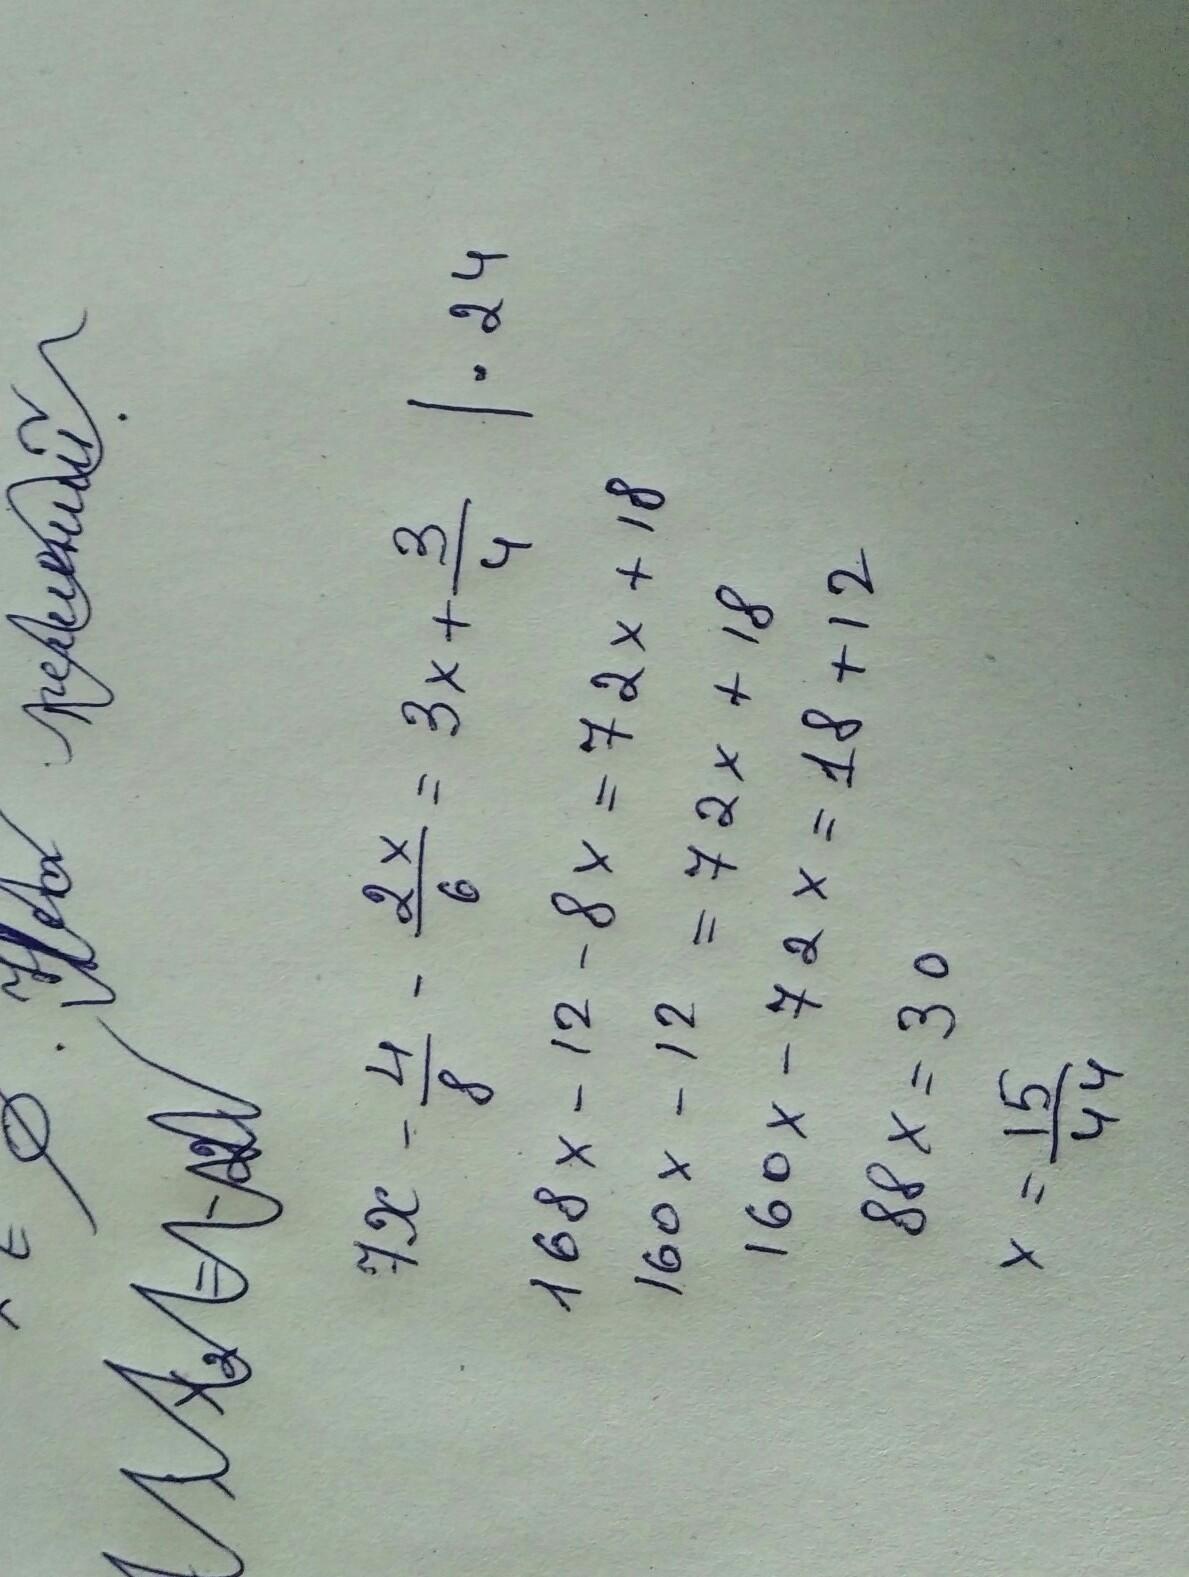 решений.
7x - 4/8 - 2x/6 = 3x + 3/4 | · 24
168x - 12 - 8x = 72x + 18
160x - 12 = 72x + 18
160x - 72x = 18 + 12
88x = 30
x = 15/44